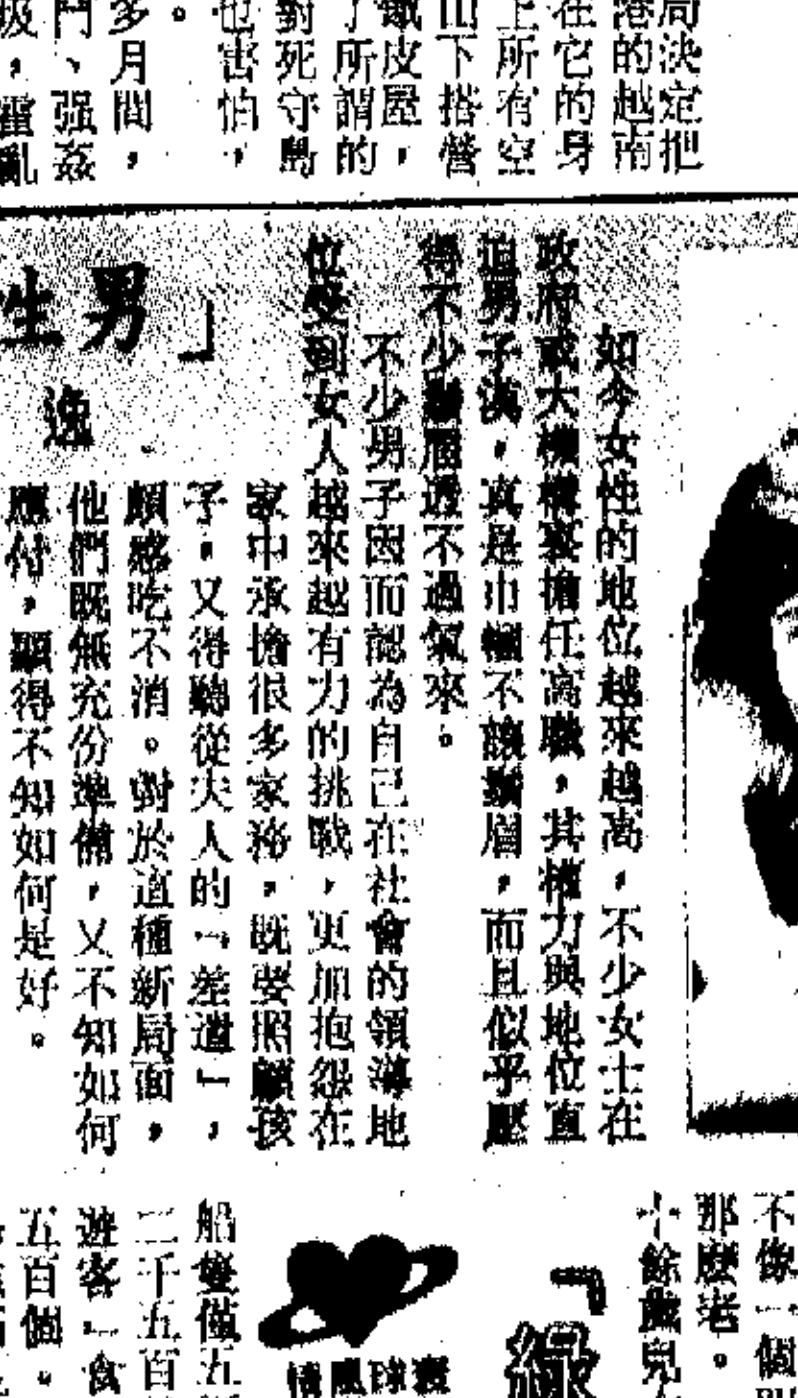 局決定把
港的越南
在它的身
上所有空
山下搭營
鐵皮屋，
了所謂的
對死守島
也害怕，
。
多月間，
鬥、强姦
圾，霍亂
如今女性的地位越來越高，不少女士在
政府或大機構裏擔任高職，其權力與地位直
迫男子漢，真是巾幗不讓鬚眉，而且似乎壓
得不少鬚眉透不過氣來。
不少男子因而認為自己在社會的領導地
位受到女人越來越有力的挑戰，更加抱怨在
家中承擔很多家務，既要照顧孩
子，又得聽從夫人的「差遣」，
頗感吃不消。對於這種新局面，
他們既無充份準備，又不知如何
應付，顯得不知如何是好。
」
男
性
逸
不像一個
那麽老。
十餘歲兒
「綠
寰球鳳情
船隻僅五
二千五百
遊客「食
五百個。